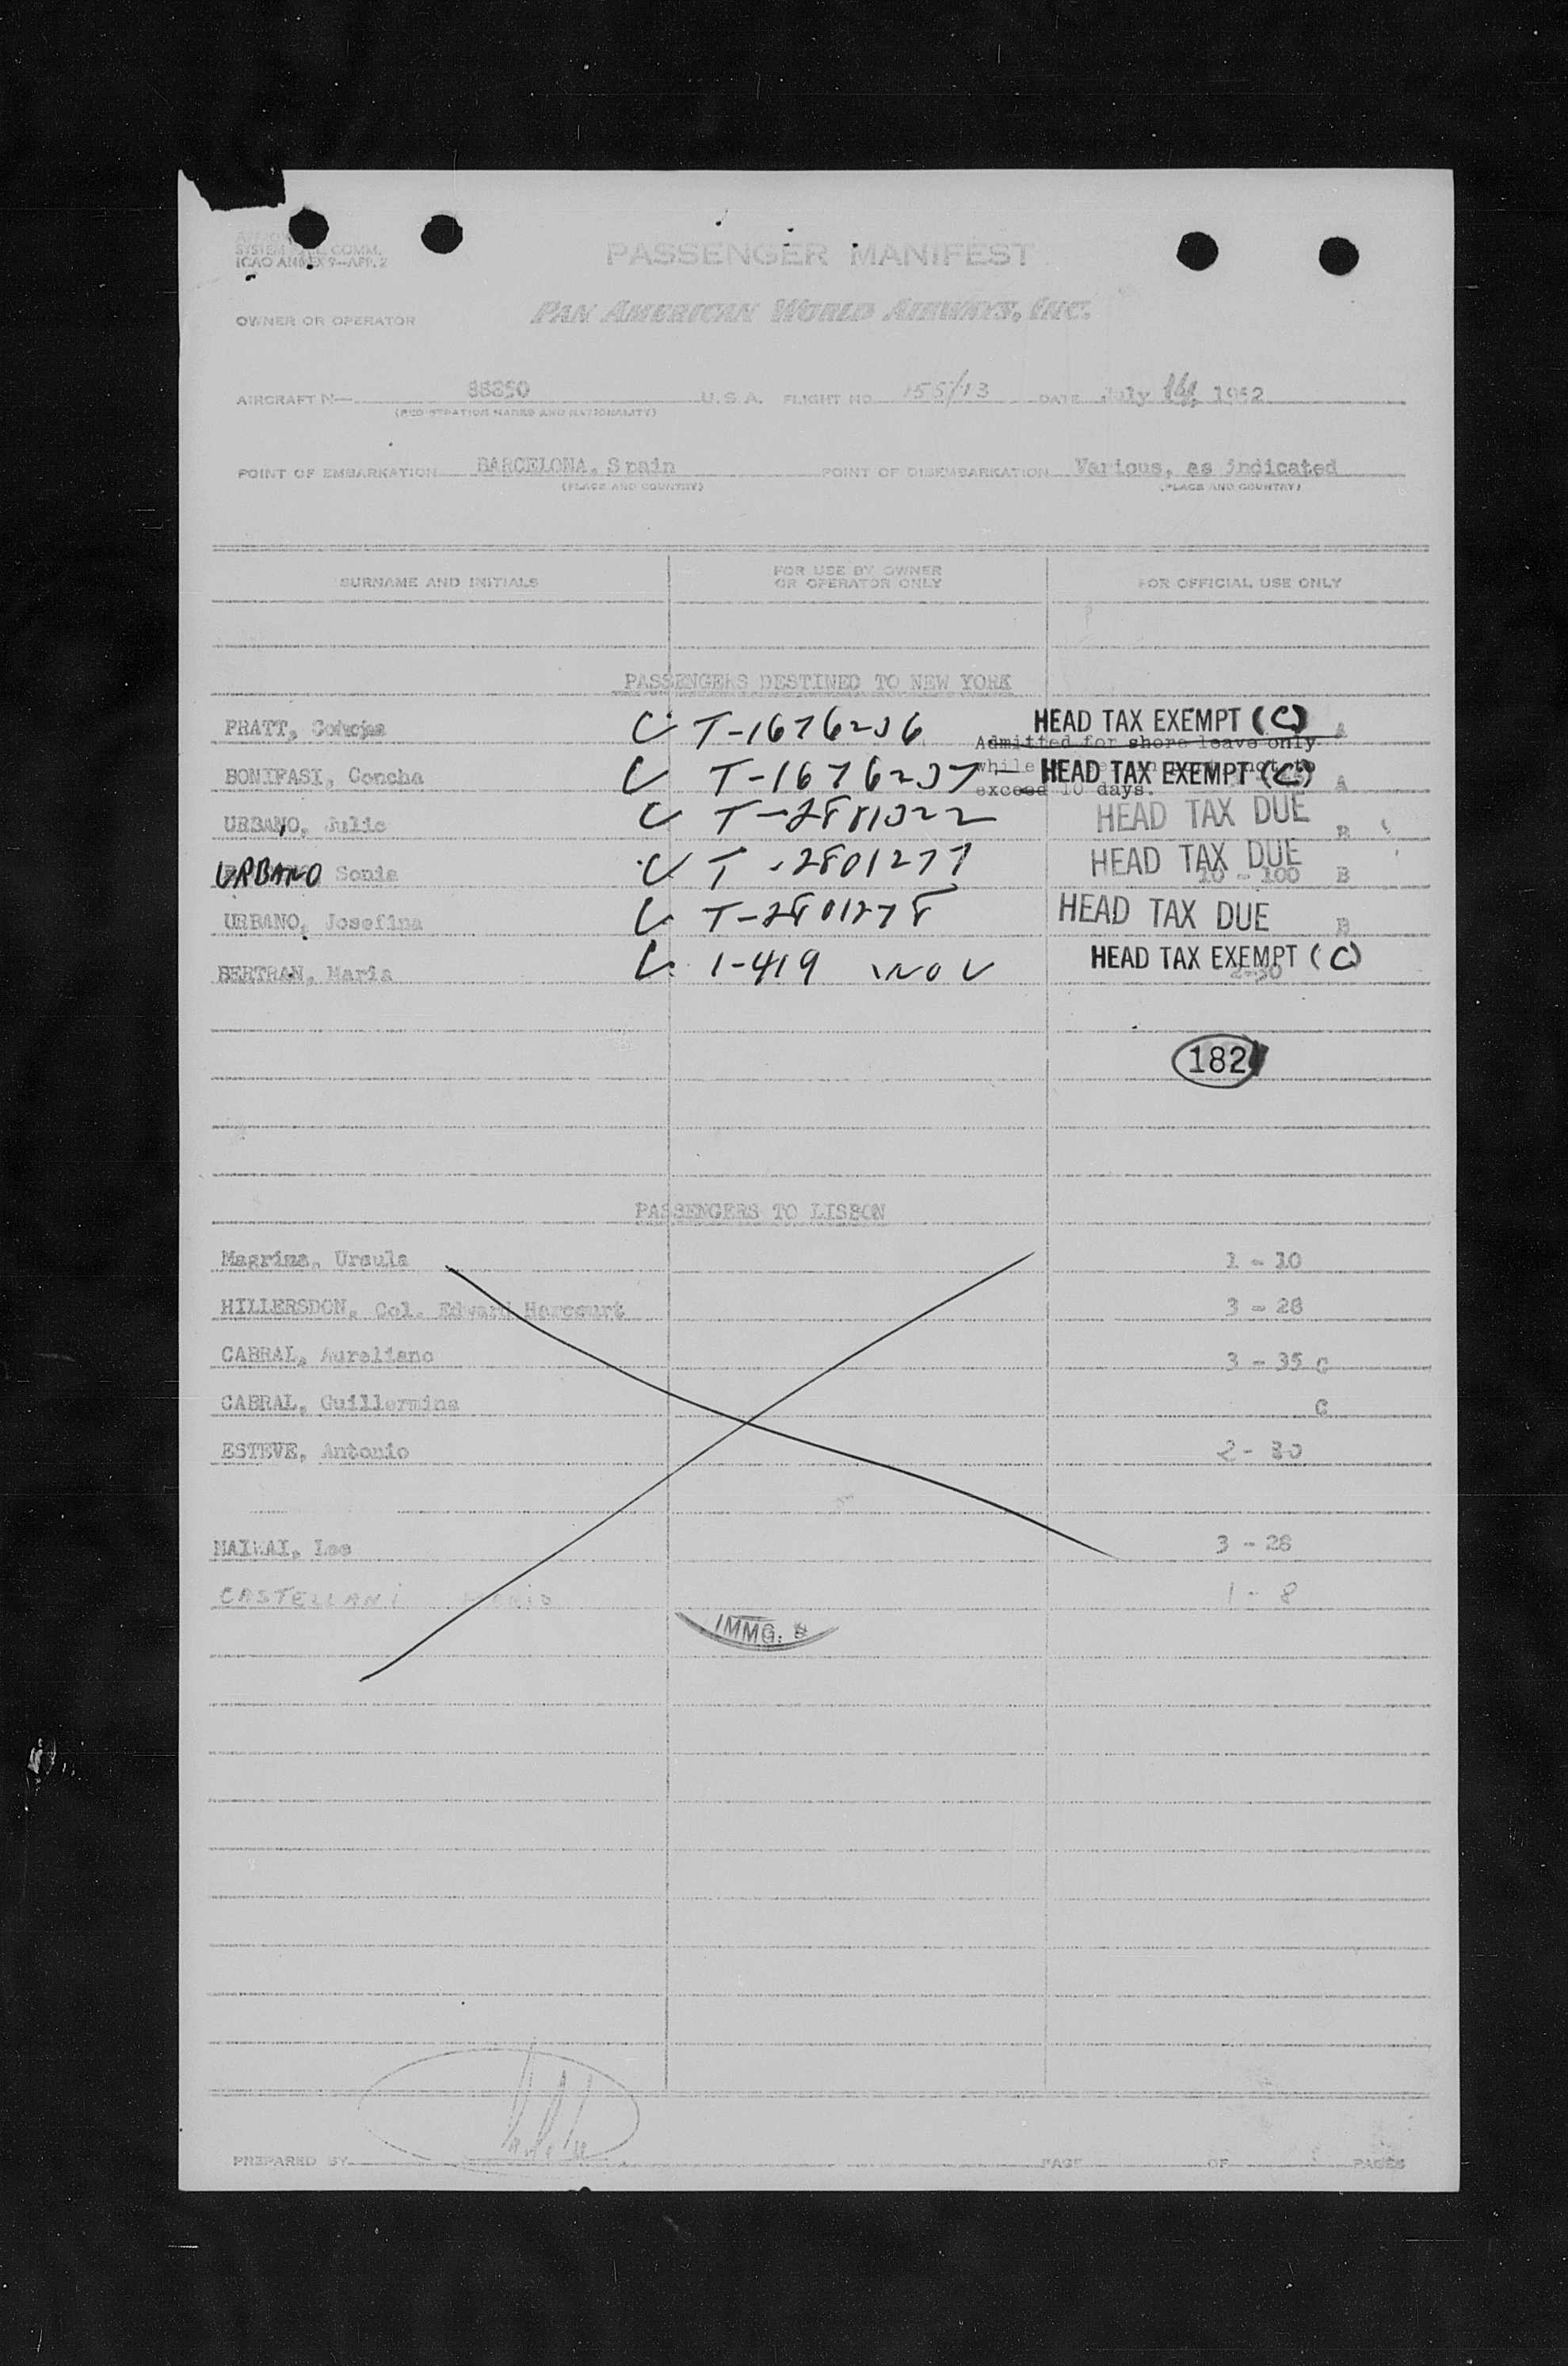 SYSTEM COMM.
ICAO ANNEX 9—APP. 2
PASSENGER MANIFEST
OWNER OR OPERATOR PAN AMERICAN WORLD AIRWAYS, INC.
AIRCRAFT N— 88850 U.S.A. FLIGHT NO. 155/13 DATE July 1952
(REGISTRATION MARKS AND NATIONALITY)
POINT OF EMBARKATION BARCELONA, Spain POINT OF DISEMBARKATION Various, as indicated
(PLACE AND COUNTRY) (PLACE AND COUNTRY)
SURNAME AND INITIALS FOR USE BY OWNER OR OPERATOR ONLY FOR OFFICIAL USE ONLY
PASSENGERS DESTINED TO NEW YORK
PRATT, T-1676236 HEAD TAX EXEMPT (C) A
Admitted for shore leave only
BONIFASI, Concha T-1676237 while HEAD TAX EXEMPT (C) A
exceed 10 days.
URBANO, Julio T-2881322 HEAD TAX DUE B
URBANO Sonia T-2801277 HEAD TAX DUE 10 - 100 B
URBANO, Josefina T-2801278 HEAD TAX DUE B
BERTRAN, Maria 1-419 HEAD TAX EXEMPT (C) 2-30
182
PASSENGERS TO LISBON
Magrina, Ursula 1 - 10
HILLERSDON, Col. Edward Harcourt 3 - 28
CABRAL, Aureliano 3 - 35 C
CABRAL, Guillermina C
ESTEVE, Antonio 2 - 30
MAIWAI, Lee 3 - 28
CASTELLANI 1 - 8
IMMG.
PREPARED BY PAGE OF PAGES